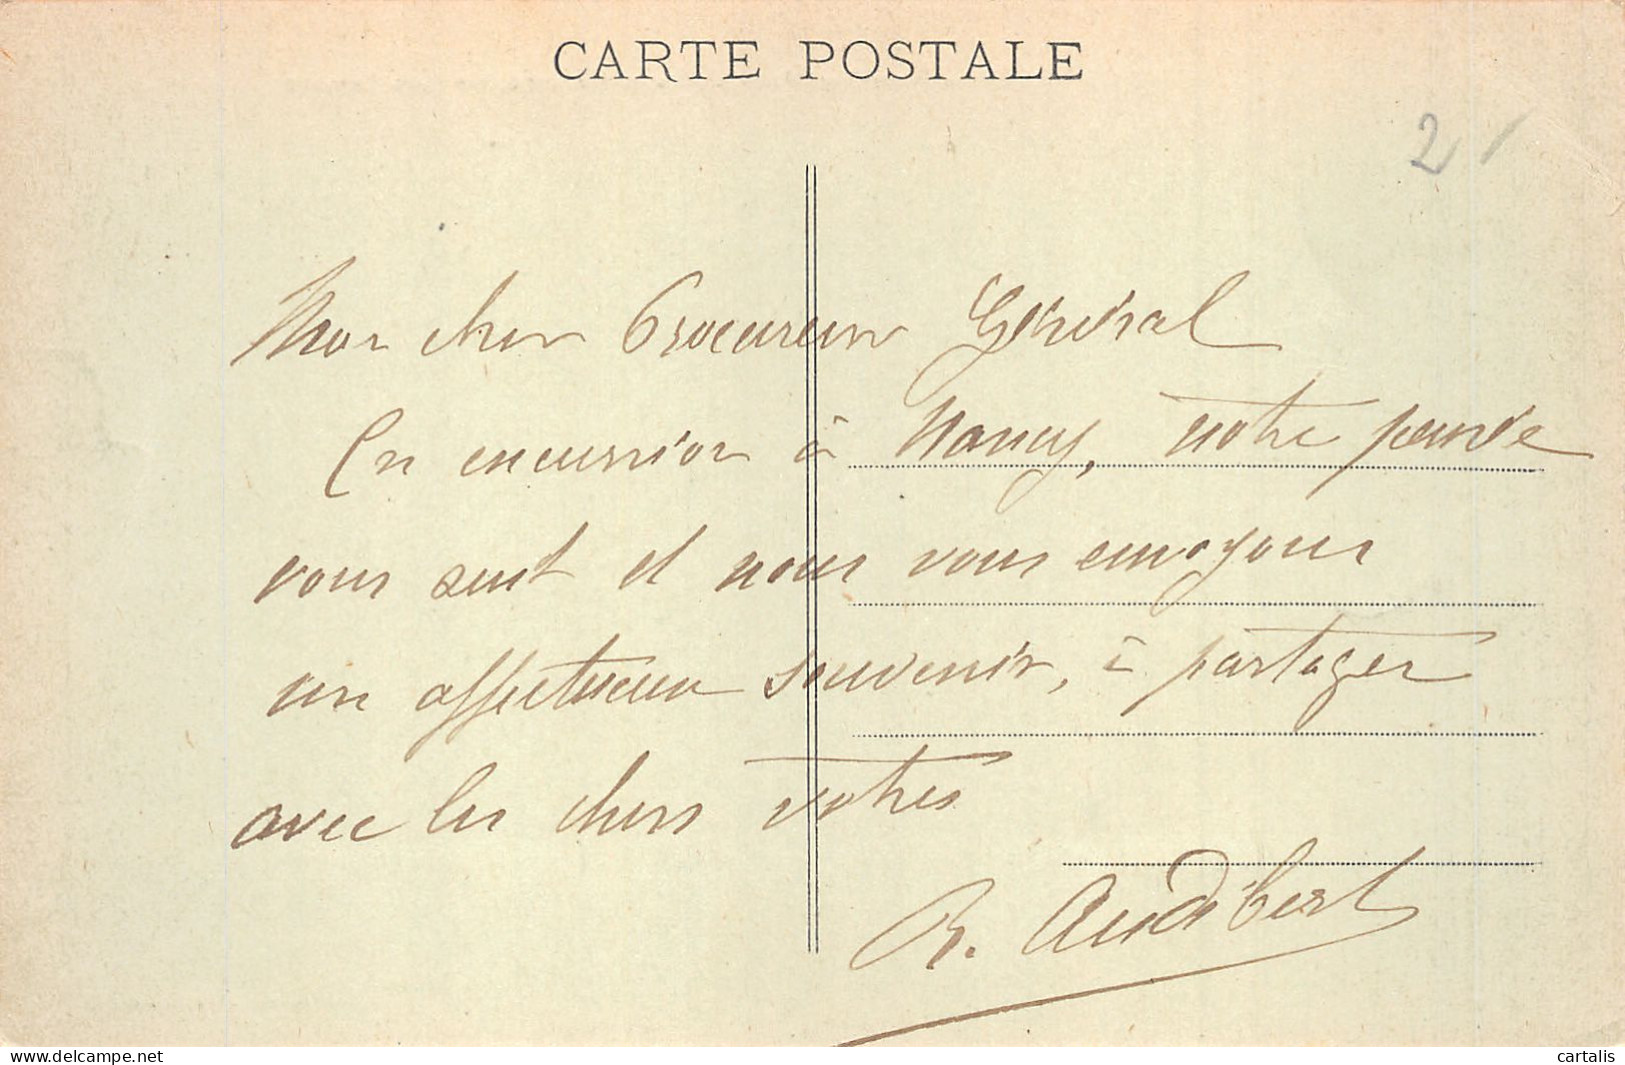 CARTE POSTALE
2
Mon cher Procureur Général
En excursion à Nancy, notre pensée
vous suit et nous vous envoyons
un affectueux souvenir, à partager
avec les chers vôtres
R. Audibert
www.delcampe.net
cartalis